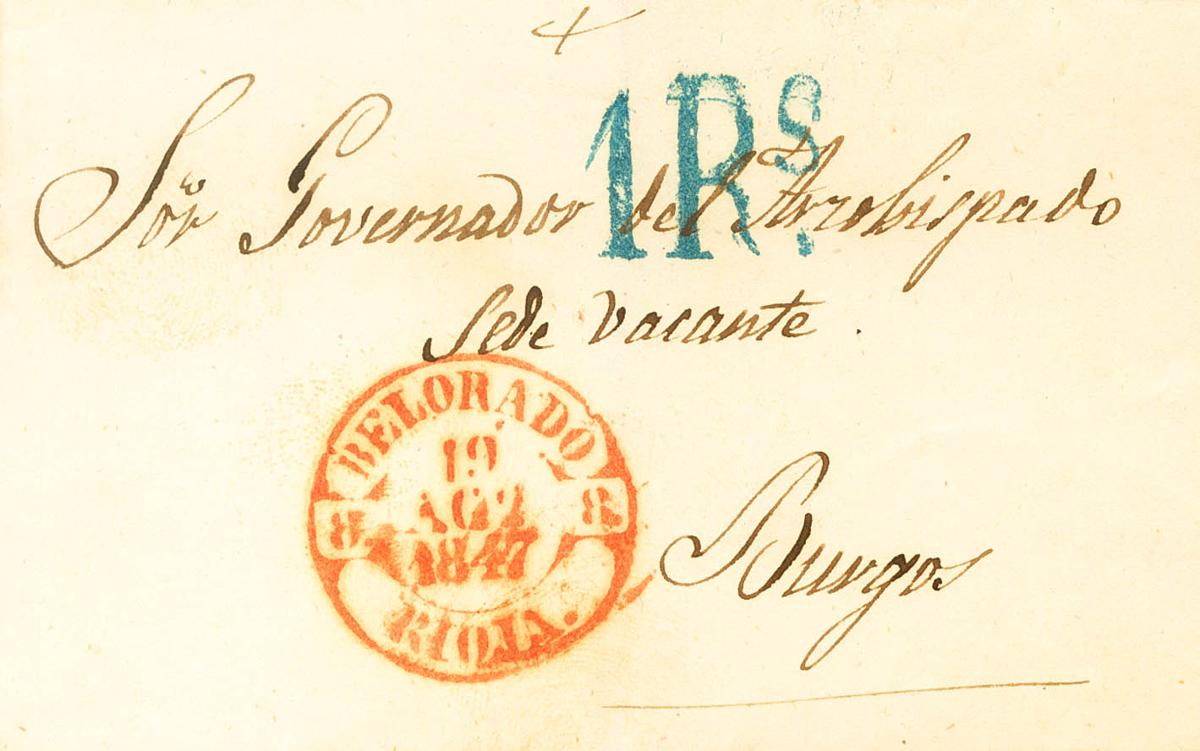 1Rs.
Sör Governador del Arzobispado
Sede Vacante.
BELORADO
8 8
19
AGO
1847
RIOJA.
Burgos